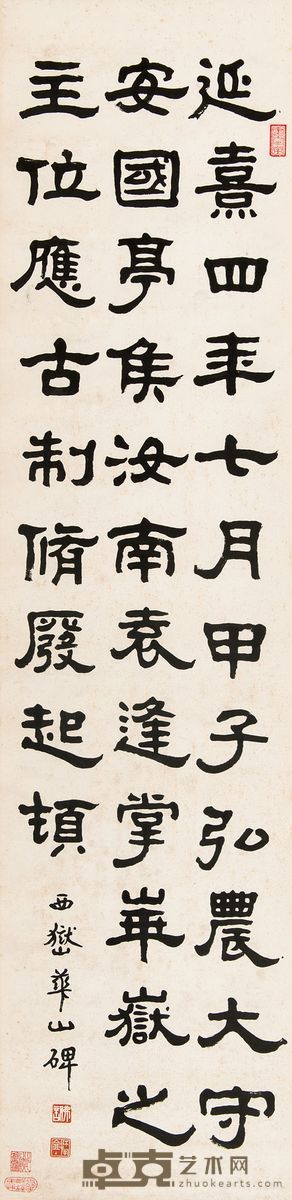 延熹四年七月甲子弘農大守
安國亭侯汝南袁逢掌崋嶽之
主位應古制脩廢起頓
西嶽華山碑
卓克艺术网
www.zhuokearts.com